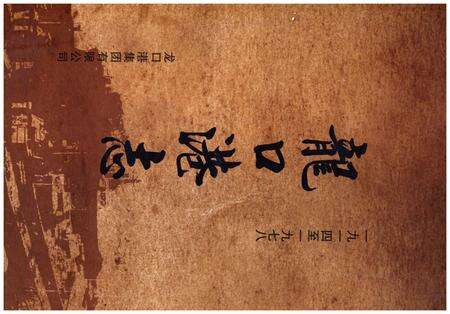 龍口港志
一九一四至一九七八
龙口港集团有限公司